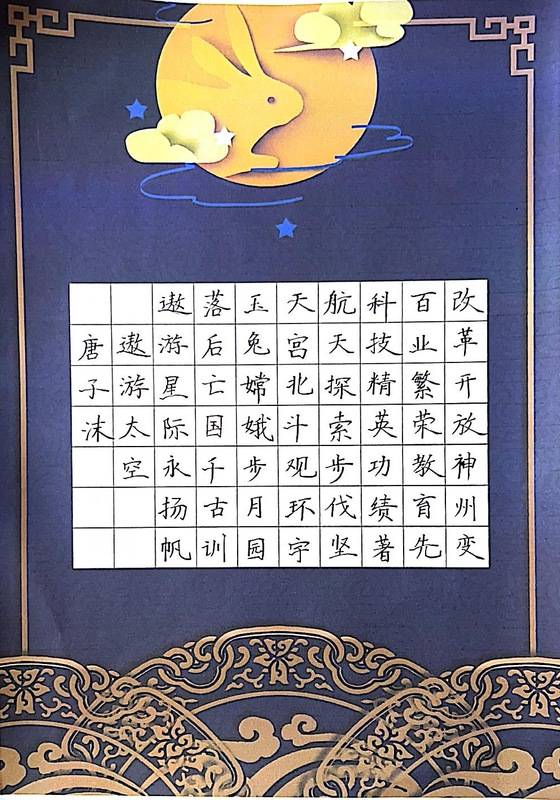 改革开放神州变
百业繁荣教育先
科技精英功绩著
航天探索步伐坚
天宫北斗观环宇
玉兔嫦娥步月园
落后亡国千古训
遨游星际永扬帆
遨游太空
唐子沫